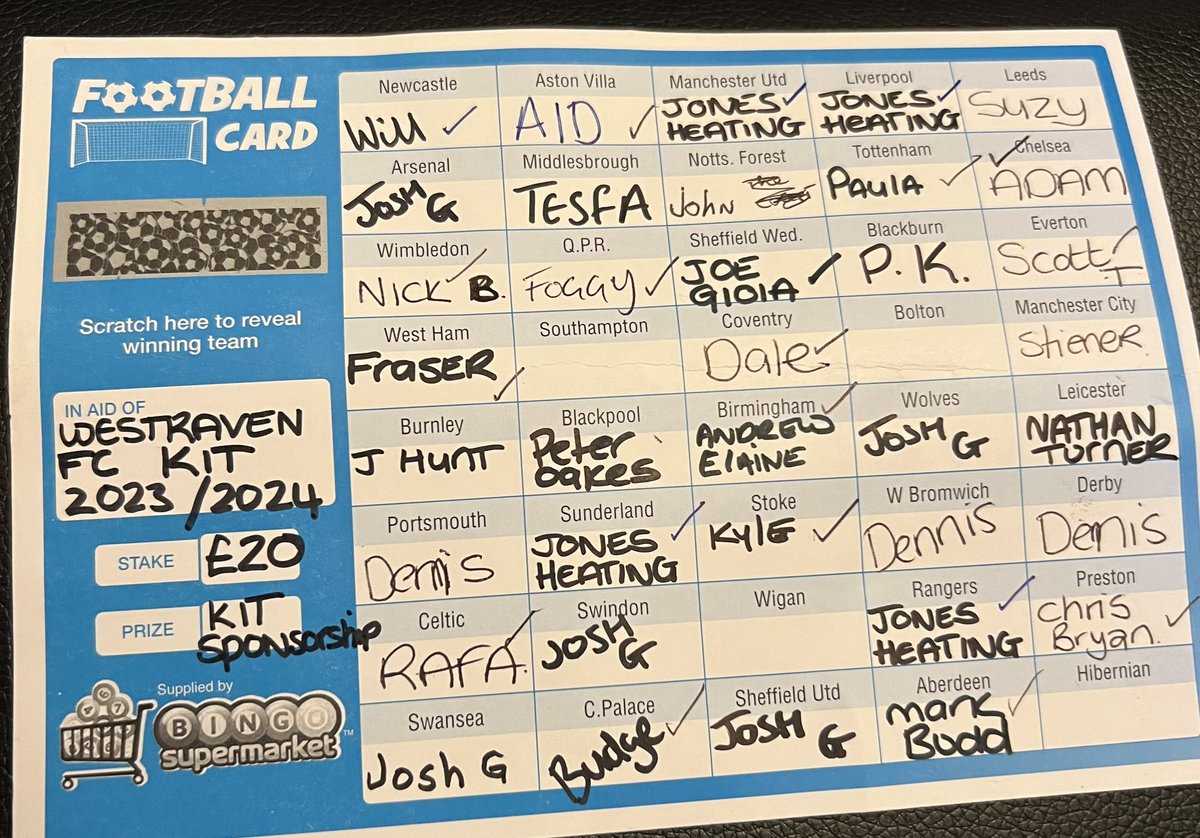 FOOTBALL
CARD
Scratch here to reveal
winning team
IN AID OF
WESTRAVEN
FC KIT
2023/2024
STAKE £20
PRIZE KIT
SPONSORSHIP
Supplied by
BINGO
supermarket™
Newcastle
Will
Aston Villa
AID
Manchester Utd
JONES
HEATING
Liverpool
JONES
HEATING
Leeds
Suzy
Arsenal
JOSH G
Middlesbrough
TESFA
Notts. Forest
John
Tottenham
PAULA
Chelsea
ADAM
Wimbledon
NICK B.
Q.P.R.
FOGGY
Sheffield Wed.
JOE
GIOIA
Blackburn
P. K.
Everton
Scott T
West Ham
FRASER
Southampton
Coventry
Dale
Bolton
Manchester City
Stiener
Burnley
J HUNT
Blackpool
Peter
oakes
Birmingham
ANDREW
ELAINE
Wolves
JOSH G
Leicester
NATHAN
TURNER
Portsmouth
Dennis
Sunderland
JONES
HEATING
Stoke
KYLE
W Bromwich
Dennis
Derby
Dennis
Celtic
RAFA.
Swindon
JOSH G
Wigan
Rangers
JONES
HEATING
Preston
Chris
Bryan.
Swansea
Josh G
C.Palace
Budge
Sheffield Utd
JOSH G
Aberdeen
mark
Budd
Hibernian